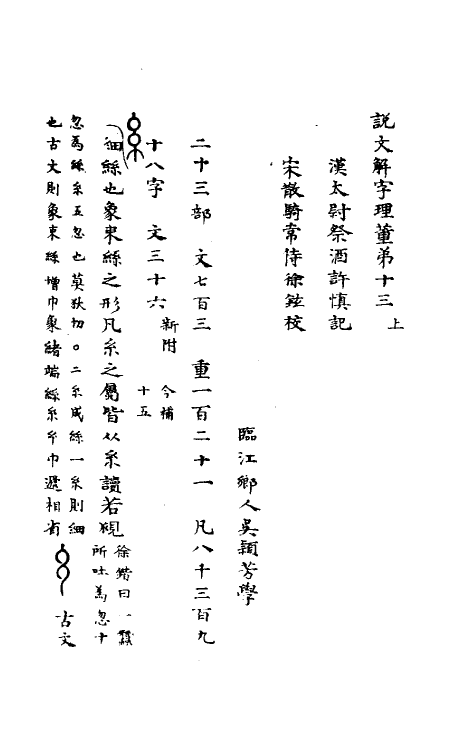 說文解字理董弟十三 上
漢太尉祭酒許慎記
宋散騎常侍徐鉉校
臨江鄉人吳穎芳學
二十三部 文七百三 重一百二十一 凡八千三百九
十八字 文三十六 新附 今補十五
細絲也象束絲之形凡糸之屬皆从糸讀若覛 徐鍇曰一蠶所吐為忽十
忽為絲糸五忽也莫狄切。二糸成絲一糸則細
也古文則象束絲增巾象緒端絲糸巾遞相省
古文